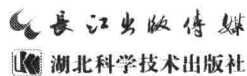 長江出版傳媒
湖北科学技术出版社